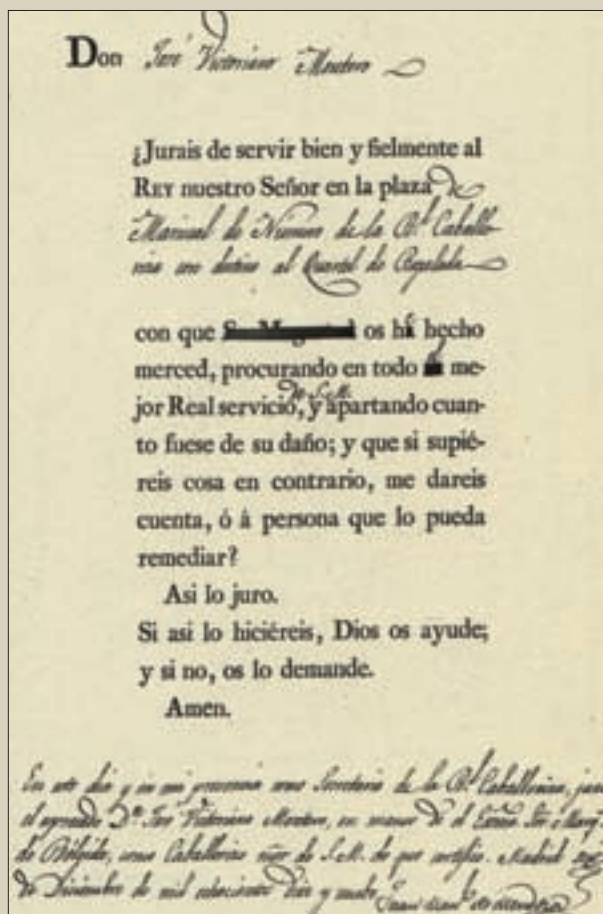 Don José Victoriano Montero
¿Jurais de servir bien y fielmente al
REY nuestro Señor en la plaza de
Mariscal de Numero de la Rl. Caballe-
riza con destino al Quartel de Regalada
con que os há hecho
merced, procurando en todo el me-
jor Real servicio de S.M., y apartando cuan-
to fuese de su daño; y que si supié-
reis cosa en contrario, me dareis
cuenta, ó á persona que lo pueda
remediar?
Asi lo juro.
Si asi lo hiciéreis, Dios os ayude;
y si no, os lo demande.
Amen.
En este dia y en mi presencia como Secretario de la Rl. Caballeriza, juró
el expresado Dn. José Victoriano Montero, en manos de el Excmo. Sor. Marqs.
de Bélgida, como Caballerizo mor. de S.M. de que certifico. Madrid
de Diciembre de mil ochocientos diez y nueve Juan Manl. de